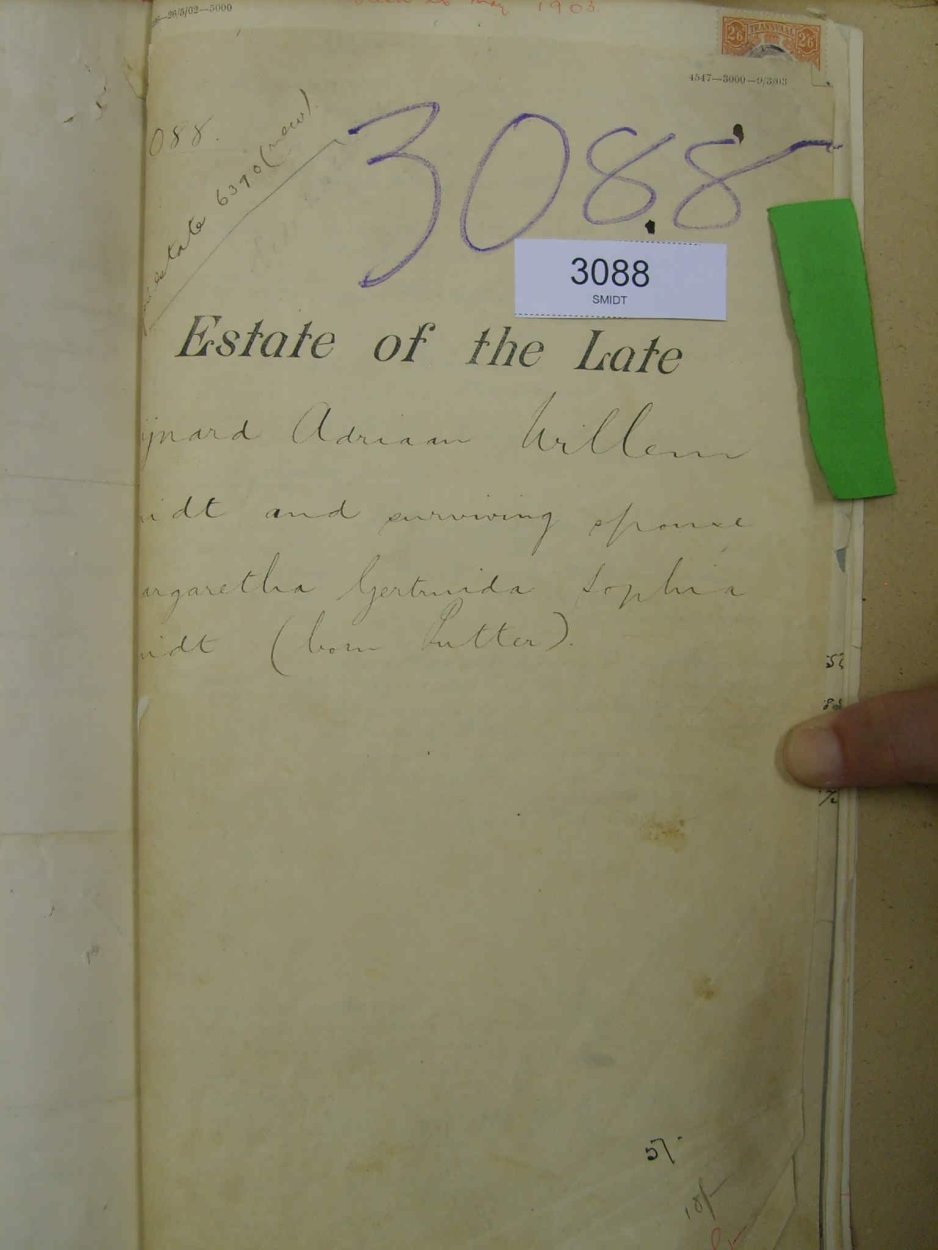 26/5/02—5000
May 1903
26 TRANSVAAL 26
4547—5000—9/3/03
088.
estate 6390 (new).
3088
3088
SMIDT
Estate of the Late
ynard Adriaan Willem
idt and surviving spouse
argaretha Gertruida Sophia
idt (born Putter).
5/-
10/-